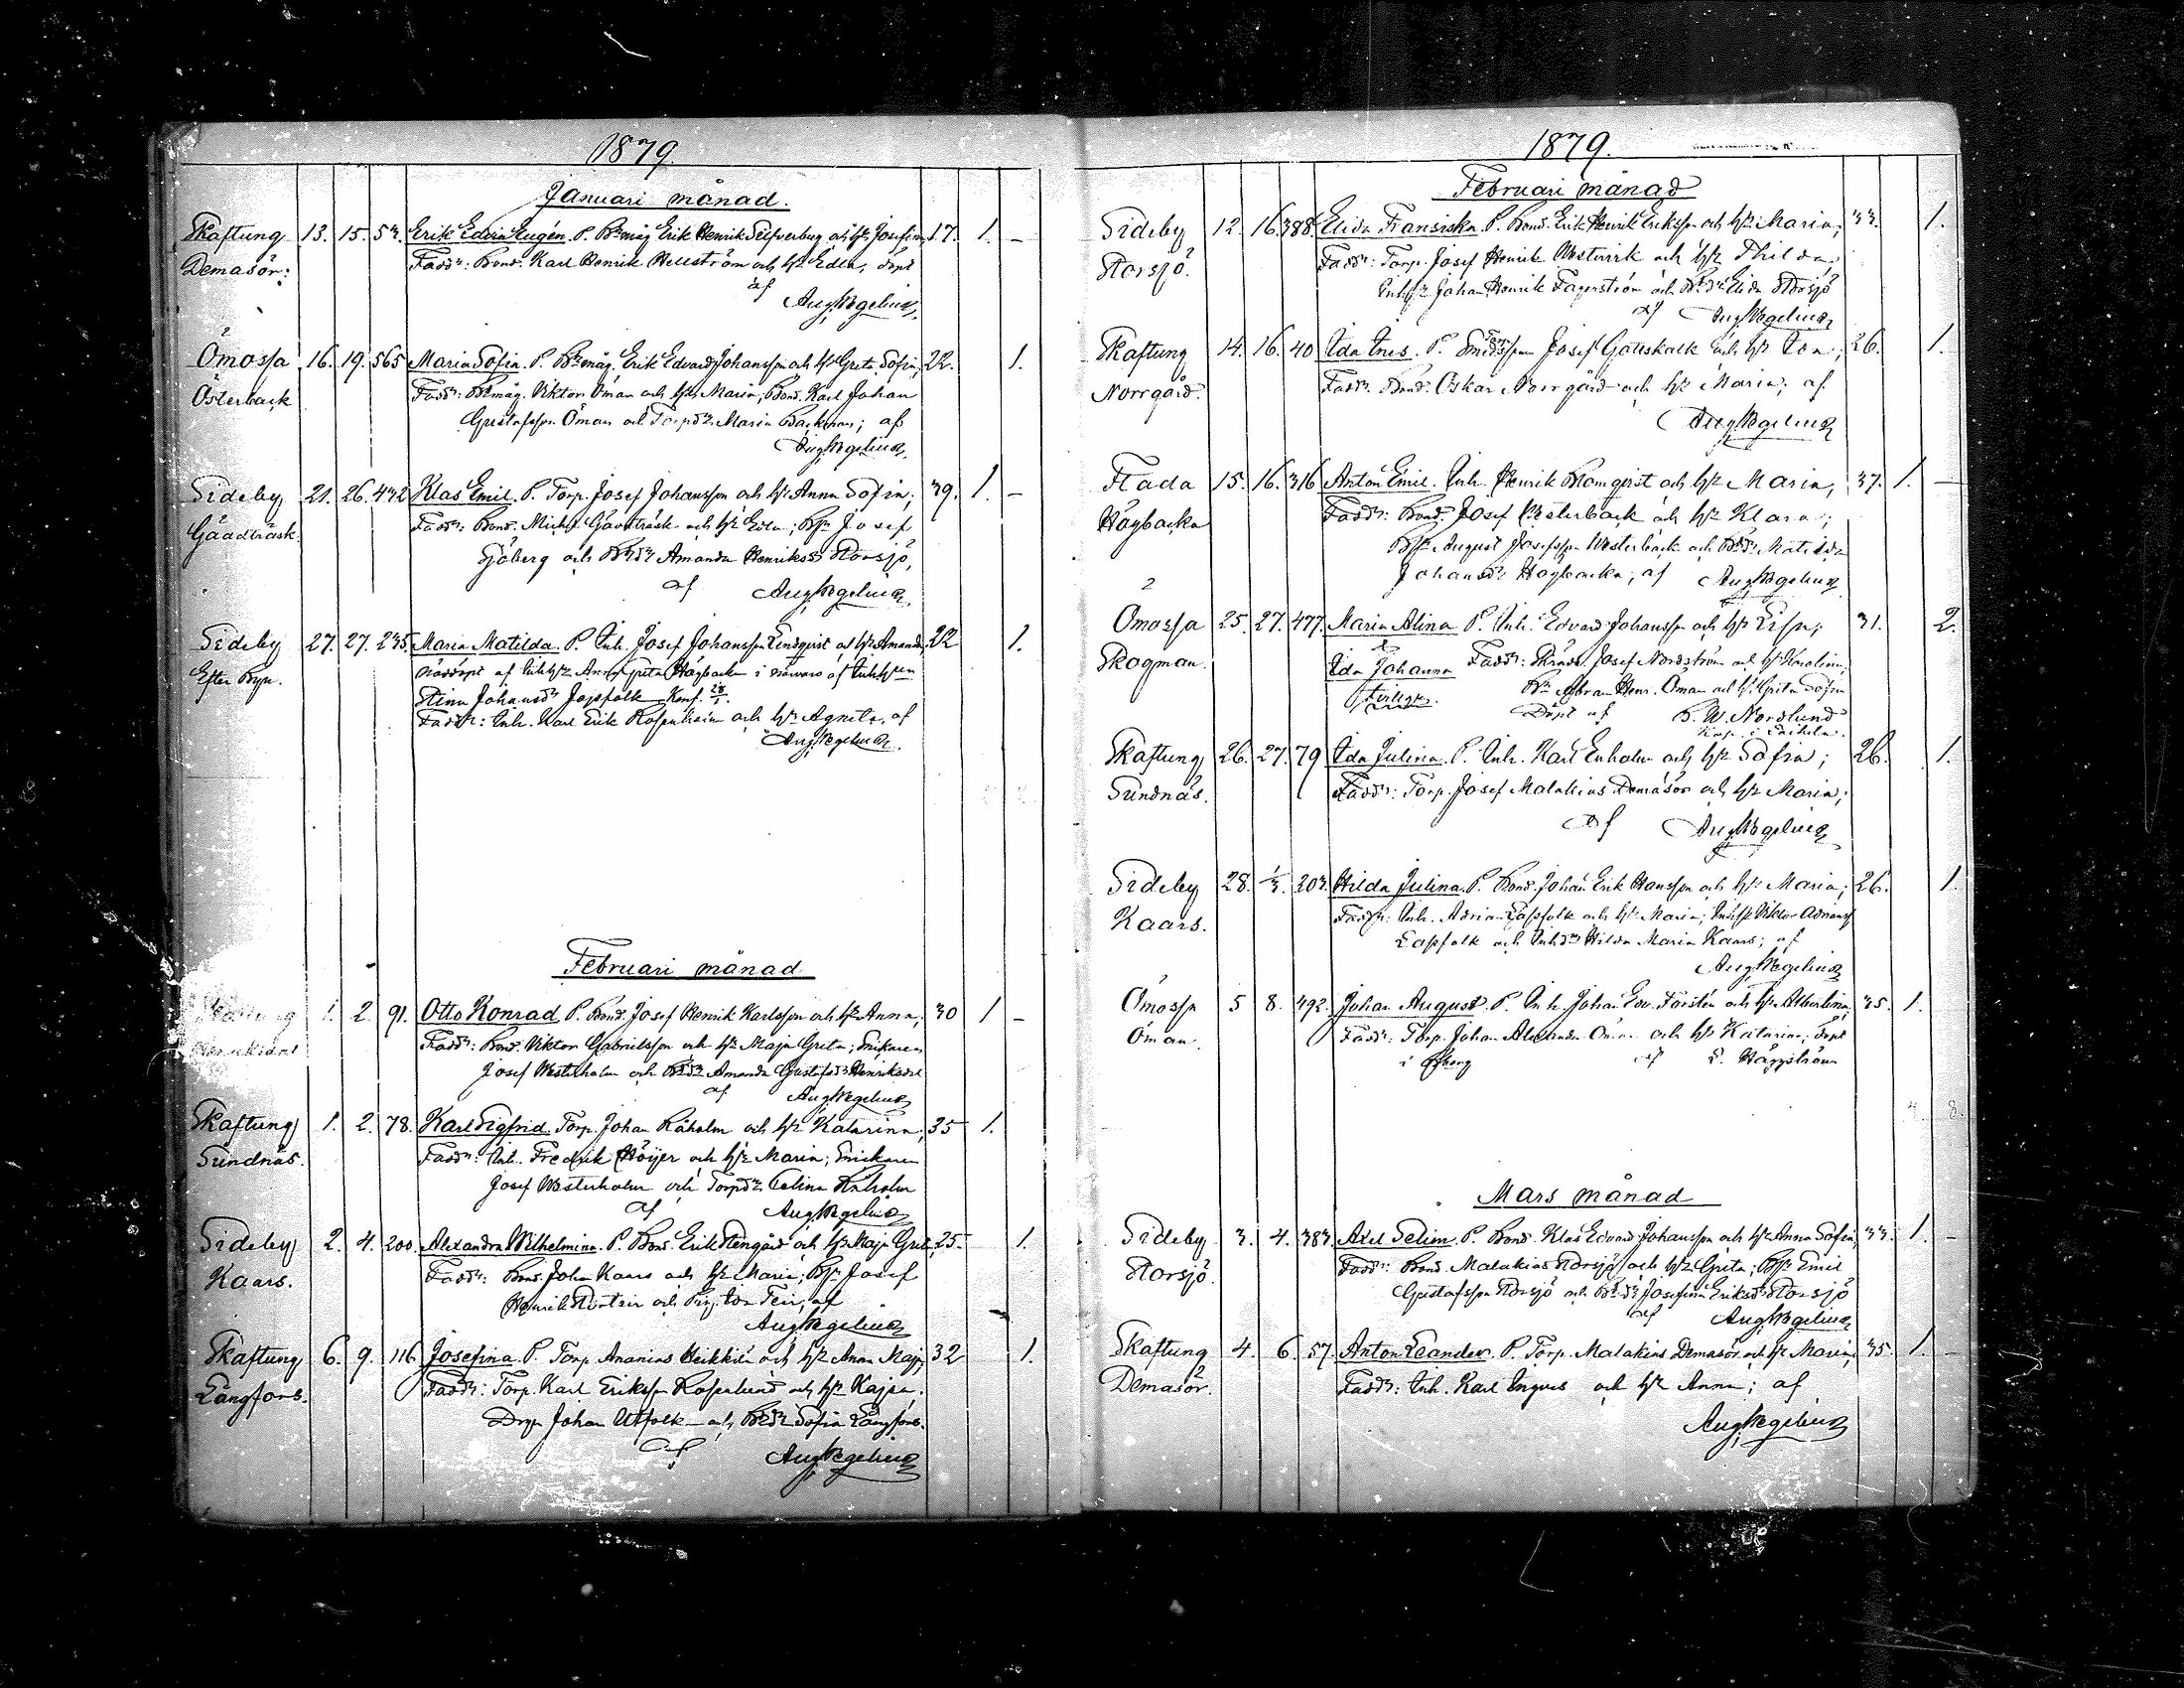 1879
Januari månad.
Skaftung 13. 15. 53. Erik Edvin Eugén. P. Bdmåg Erik Henrik Selfverberg och h/r Josefina, 17. 1. –
Demasör: Faddr: Bond. Karl Henrik Hellström och h/r Edla, döpt
af
Aug. Wegelius,
Ömossa 16. 19. 565 Maria Sofia. P. Bdmåg. Erik Edvard Johansson och h/r Greta Sofia, 22. 1.
Österback Faddr: Bdmåg. Viktor Öman och h/r Maria, Bond. Karl Johan
Gustafsson Öman och Torpdr Maria Backman; af
Aug. Wegelius,
Sideby 21. 26. 432 Klas Emil. P. Torp. Josef Johansson och h/r Anna Sofia; 39. 1. –
Gåadträsk. Faddr: Bond. Mich. Gåadträsk och h/r Edla; Bsn Josef
Sjöberg och Bdr Amanda Henriksdr Storsjö,
af Aug. Wegelius,
Sideby 27. 27. 235. Maria Matilda. P. Inh. Josef Johansson Lindqvist och h/r Amanda 22 1.
Efter Byn. Nöddöpt af Inhhr Anna Greta Hagback i närvaro af Inhhrn
Stina Johansdr Japsfolk Konf. 28/1.
Faddr: Inh. Karl Erik Rosenheim och h/r Agneta, af
Aug. Wegelius.
Februari månad
1. 2. 91. Otto Konrad P. Bond. Josef Henrik Karlsson och h/r Anna, 30 1 –
Faddr: Bond. Viktor Gabrielsson och h/r Maja Greta; Snickaren
Josef Westerholm och Bdr Amanda Gustafsdr Henriksdal
af Aug. Wegelius
Skaftung 1. 2. 78. Karl Sigfrid. Torp. Johan Råholm och h/r Katarina, 35 1.
Sundnäs. Faddr: Inh. Fredrik Höijer och h/r Maria; Snickaren
Josef Westerholm och Torpdr Celina Enholm
af Aug. Wegelius
Sideby 2. 4. 200. Alexandra Wilhelmina. P. Bond. Erik Stengård och h/r Maja Greta, 25. 1.
Kaars. Faddr: Bond. Johan Kaars och h/r Maria; Bsn Josef
Henrik Storteir och Pig. Ida Teir, af
Aug. Wegelius
Skaftung 6. 9. 116 Josefina. P. Torp. Ananias Heikkilä och h/r Anna Maja, 32 1.
Långfors. Faddr: Torp. Karl Eriksson Rosenlund och h/r Kajsa.
Drg. Johan Utfolk och Bdr Sofia Långfors.
af
Aug. Wegelius
1879.
Februari månad
Sideby 12. 16. 388. Elida Fransiska. P. Bond. Erik Henrik Eriksson och h/r Maria, 33. 1.
Storsjö. Faddr: Torp. Josef Henrik Westervik och h/r Thilda,
Johan Henrik Fagerström och Bdr Elida Storsjö
af Aug. Wegelius
Skaftung 14. 16. 40 Ida Ines. P. Josef Gottskalk och h/r Ida, 26. 1.
Norrgård. Faddr. Bond. Oskar Norrgård och h/r Maria; af
Aug. Wegelius
Flada 15. 16. 316 Anton Emil. Inh. Henrik Blomqvist och h/r Maria, 37. 1. –
Hagbacka Faddr: Bond. Josef Westerback och h/r Klara;
Bsn August Josefsson Westerback och Bdr Matilda
Johansdr Hagbacka, af Aug. Wegelius
Ömossa 25. 27. 477. Maria Alina P. Inh. Edvard Johansson och h/r Lisa; 31. 2.
Skogman. Ida Johanna Faddr: Josef Nordström och h/r Karolina,
tvillingar. Abram Henr. Öman och h/r Greta Sofia
Döpt af B. W. Nordlund
Skaftung 26. 27. 79 Ida Julina. P. Inh. Karl Enholm och h/r Sofia; 26. 1.
Sundnäs. Faddr: Torp. Josef Malakias Demasör och h/r Maria;
af Aug. Wegelius
Sideby 28. 1/3. 203. Hilda Julina. P. Bond. Johan Erik Hansson och h/r Maria; 26. 1.
Kaars. Faddr: Inh. Adrian Lassfolk och h/r Maria; Viktor Adriansf
Lassfolk och Inhdr Hilda Maria Kaars; af
Aug. Wegelius
Ömossa 5 8. 492. Johan August. P. Inh. Johan Edv. Forstén och h/r Albertina, 35. 1.
Öman. Faddr: Torp. Johan Alexander Öman och h/r Katarina, döpt
i af L. Häggström
Mars månad
Sideby 3. 4. 383. Axel Selim. P. Bond. Klas Edvard Johansson och h/r Anna Sofia, 33. 1. –
Storsjö. Faddr: Bond. Malakias Storsjö och h/r Greta; Bsn Emil
Gustafsson Storsjö och Bdr Josefina Eriksdr Storsjö
af Aug. Wegelius
Skaftung 4. 6. 57. Anton Leander. P. Torp. Malakias Demasör och h/r Maria, 35. 1. –
Demasör. Faddr: Inh. Karl Engves och h/r Anna; af
Aug. Wegelius